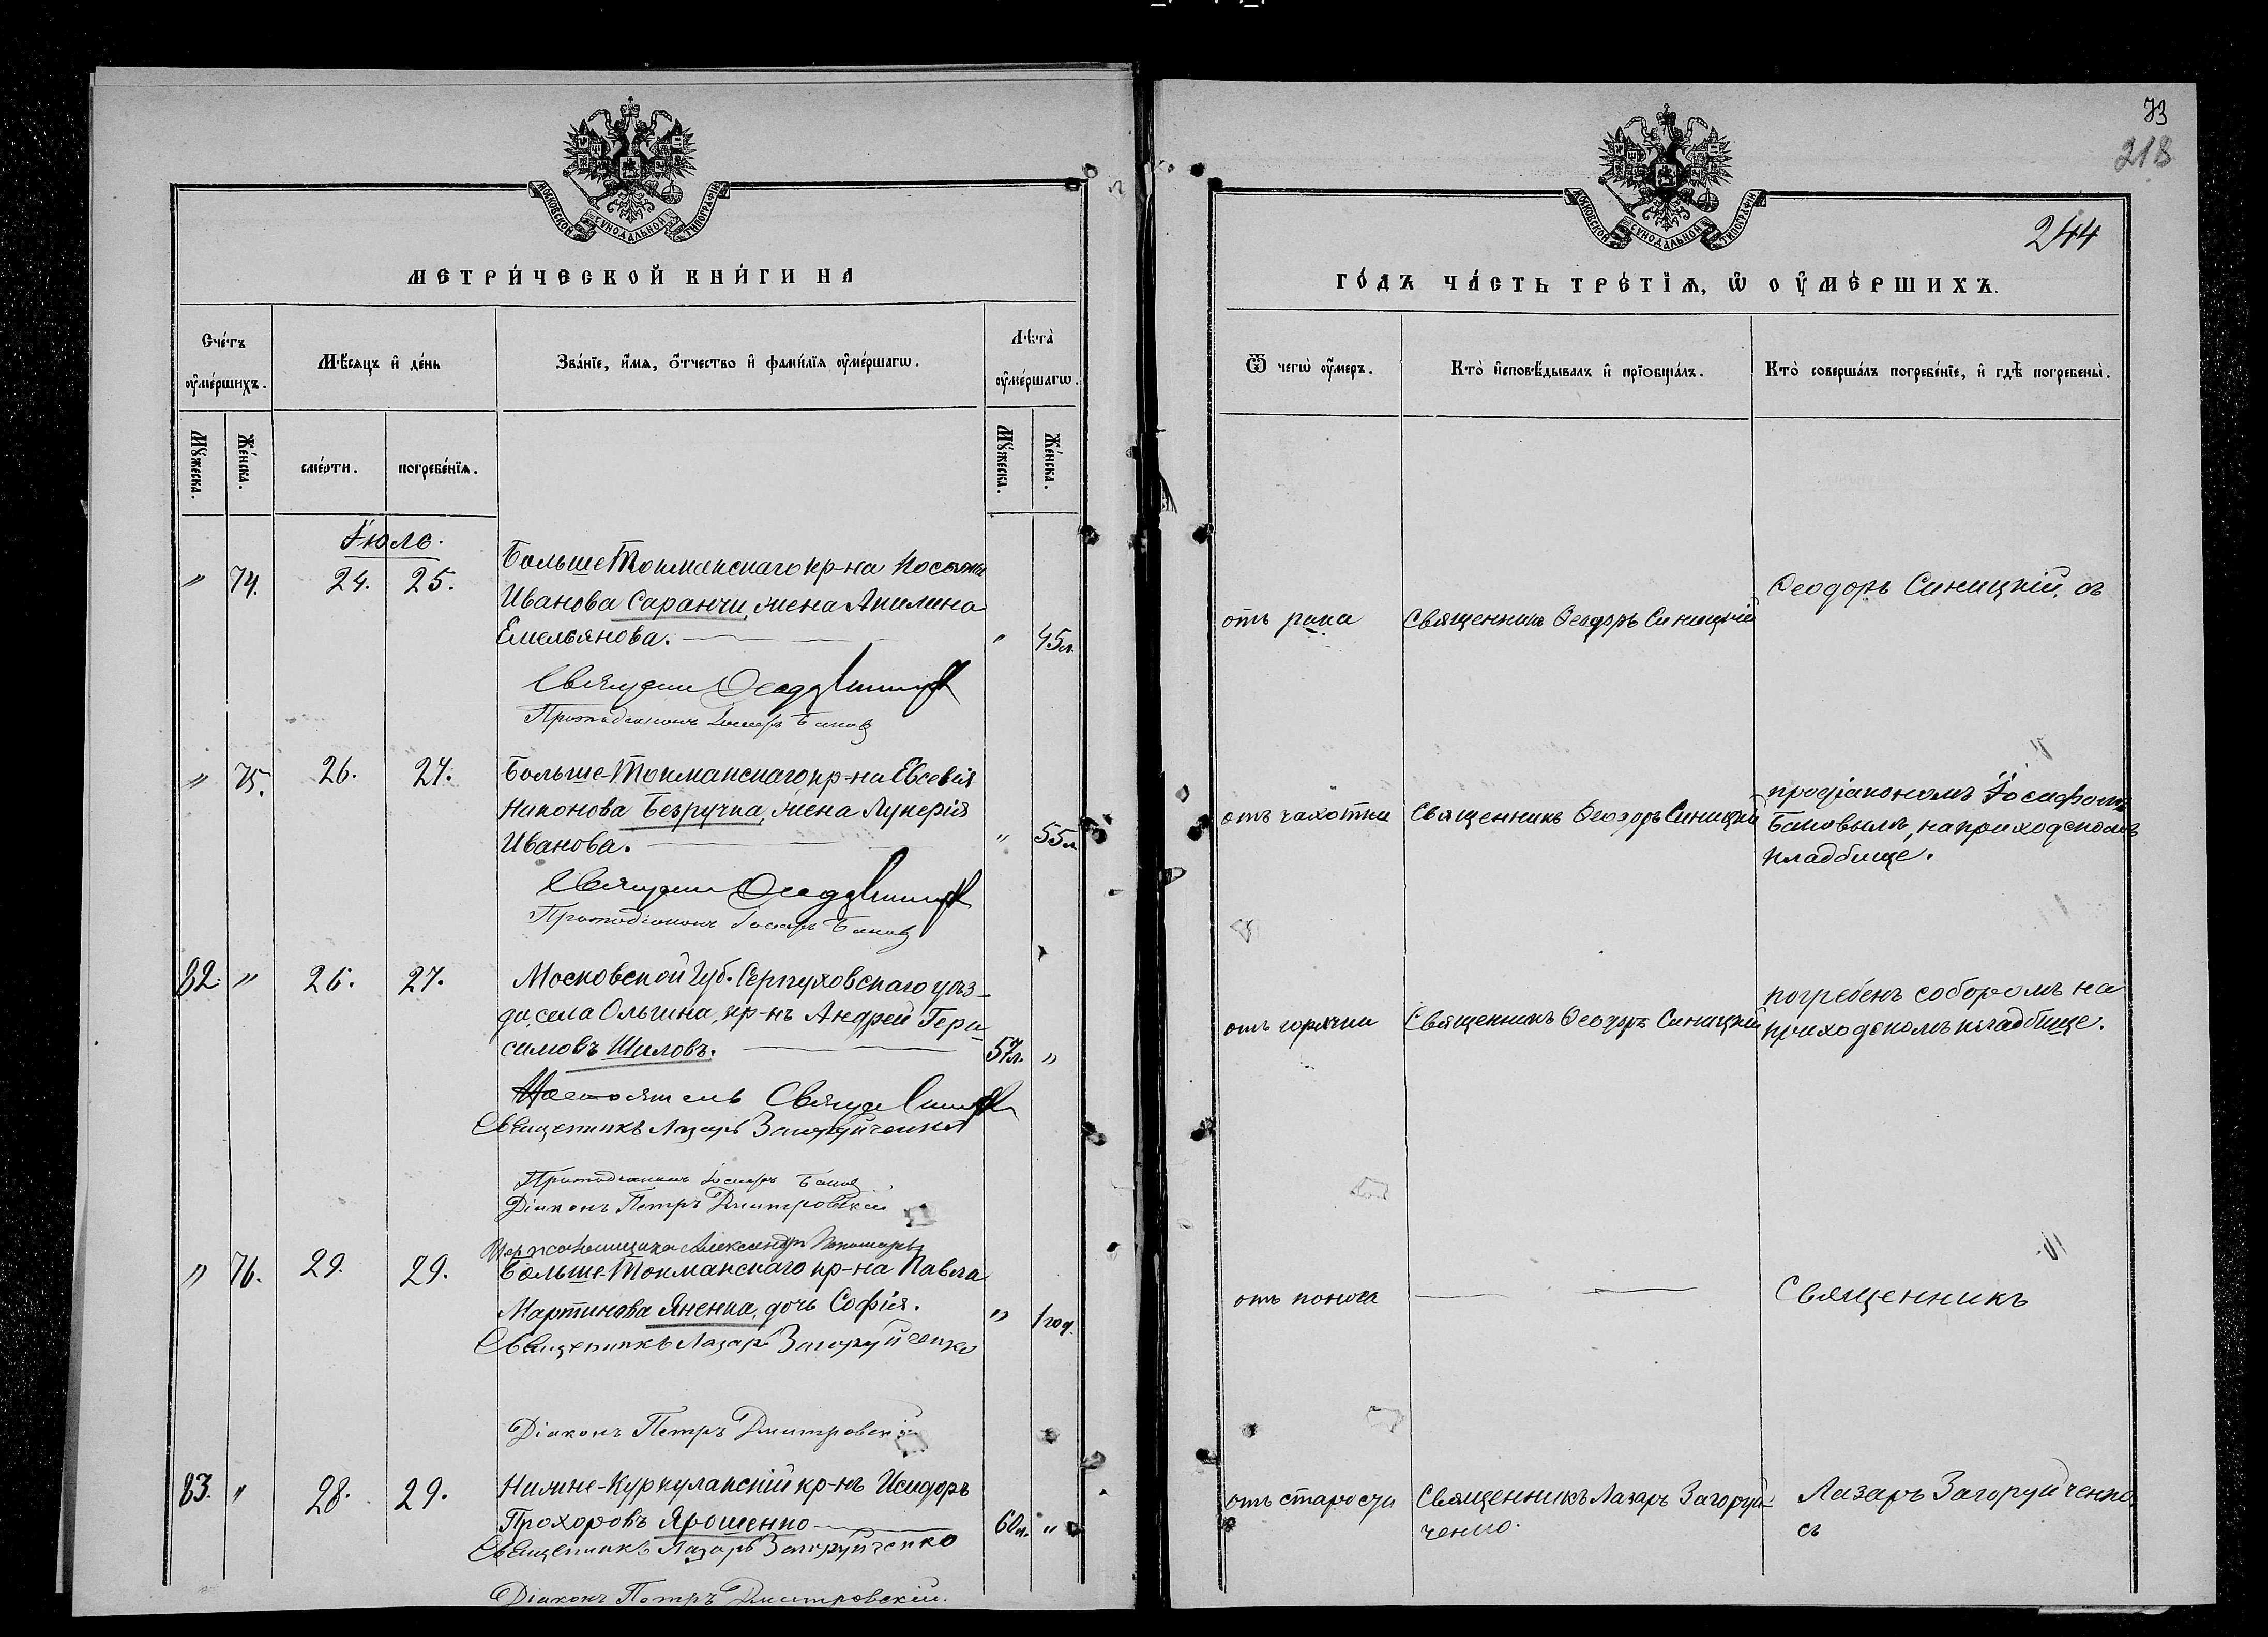 МОСКОВСКОЙ СѴНОДАЛЬНОЙ ТИПОГРАФІИ
МЕТРИ́ЧЕСКОЙ КНИ́ГИ НА
Сче́тъ ᲂу҆ме́ршихъ.
Мѣ́сяцъ и҆ де́нь
Зва́нїе, и҆́мѧ, ѻ҆́тчество и҆ фами́лїѧ ᲂу҆ме́ршагѡ.
Лѣ́та ᲂу҆ме́ршагѡ.
Мꙋ́жеска.
Же́нска.
сме́рти.
погребе́нїѧ.
Мꙋ́жеска.
Же́нска.
Іюль.
" 74. 24. 25. Больше Токмакскаго кр-на Иосифа
Иванова Саранчи, жена Акилина
Емельянова. " 45 л.
Протодіаконъ Іосифъ Баковъ
" 75. 26. 27. Больше-Токмакскаго кр-на Евсевія
Никонова Безручка, жена Лукерія
Иванова. " 55 л.
Протодіаконъ Іосифъ Баковъ
82. " 26. 27. Московской Губ. Серпуховскаго уѣз-
да, села Ольгина, кр-нъ Андрей Гера-
симовъ Шиловъ. 57 л. "
Настоятель Священ
Священникъ Лазарь Загоруйченко
Протодіаконъ Іосифъ Баковъ
Діаконъ Петръ Дмитровскій
Александръ
" 76. 29. 29. Больше-Токмакскаго кр-на Павла
Мартинова Яненка, дочь Софія. " 1 год.
Священникъ Лазарь Загоруйченко
Діаконъ Петръ Дмитровскій
83. " 28. 29. Нижне-Куркулакскій кр-нъ Исидоръ
Прохоровъ Ярошенко 60 л. "
Священникъ Лазарь Загоруйченко
Діаконъ Петръ Дмитровскій.
73
218
244
МОСКОВСКОЙ СѴНОДАЛЬНОЙ ТИПОГРАФІИ
ГО́ДЪ ЧА́СТЬ ТРЕ́ТЇѦ, Ѡ҆ ОУ҆МЕ́РШИХЪ.
Ѿ чегѡ̀ ᲂу҆́меръ.
Кто̀ и҆сповѣ́дывалъ и҆ прїѡбща́лъ.
Кто̀ соверша́лъ погребе́нїе, и҆ гдѣ̀ погребены̀.
отъ рака Священникъ Ѳеодоръ Синицкій Ѳеодоръ Синицкій, съ
отъ чахотки Священникъ Ѳеодоръ Синицкій продіакономъ Іосифомъ
Баковымъ, на приходскомъ
кладбищѣ.
отъ горячки Священникъ Ѳеодоръ Синицкій погребенъ соборомъ на
приходскомъ кладбищѣ.
отъ поноса Священникъ
отъ старости Священникъ Лазарь Загоруй-
ченко. Лазарь Загоруйченко
съ